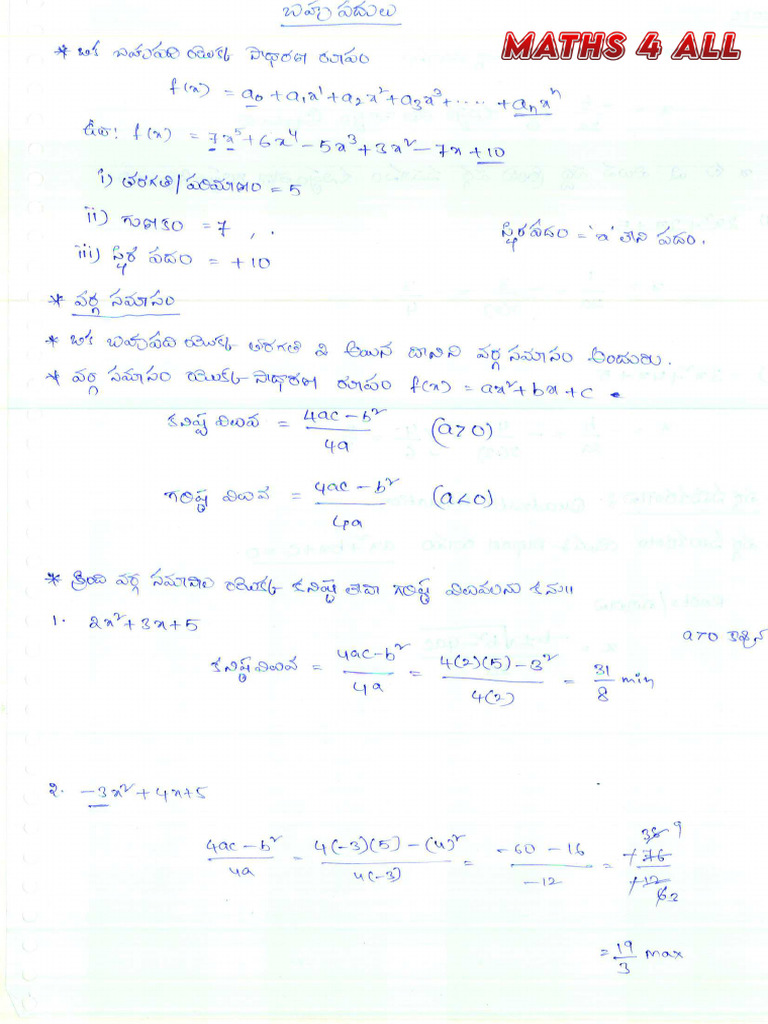 బహుపదులు
MATHS 4 ALL
* ఒక బహుపది యొక్క సాధారణ రూపం
f(x) = a₀ + a₁x¹ + a₂x² + a₃x³ + ..... + aₙxⁿ
ఉదా: f(x) = 7x⁵ + 6x⁴ - 5x³ + 3x² - 7x + 10
i) తరగతి/పరిమాణం = 5
ii) గుణకం = 7
స్థిరపదం = 'x' లేని పదం.
iii) స్థిర పదం = +10
* వర్గ సమాసం
* ఒక బహుపది యొక్క తరగతి 2 అయిన దానిని వర్గ సమాసం అందురు.
* వర్గ సమాసం యొక్క సాధారణ రూపం f(x) = ax² + bx + c .
కనిష్ట విలువ = (4ac - b²)/4a (a>0)
గరిష్ఠ విలువ = (4ac - b²)/4a (a<0)
* క్రింది వర్గ సమాసాల యొక్క కనిష్ట లేదా గరిష్ఠ విలువలను కను॥
1. 2x² + 3x + 5
a>0
కనిష్ట విలువ = (4ac - b²)/4a = (4(2)(5) - 3²)/4(2) = 31/8 min
2. -3x² + 4x + 5
(4ac - b²)/4a = (4(-3)(5) - (4)²)/4(-3) = (-60 - 16)/-12 = 76/12
= 19/3 max